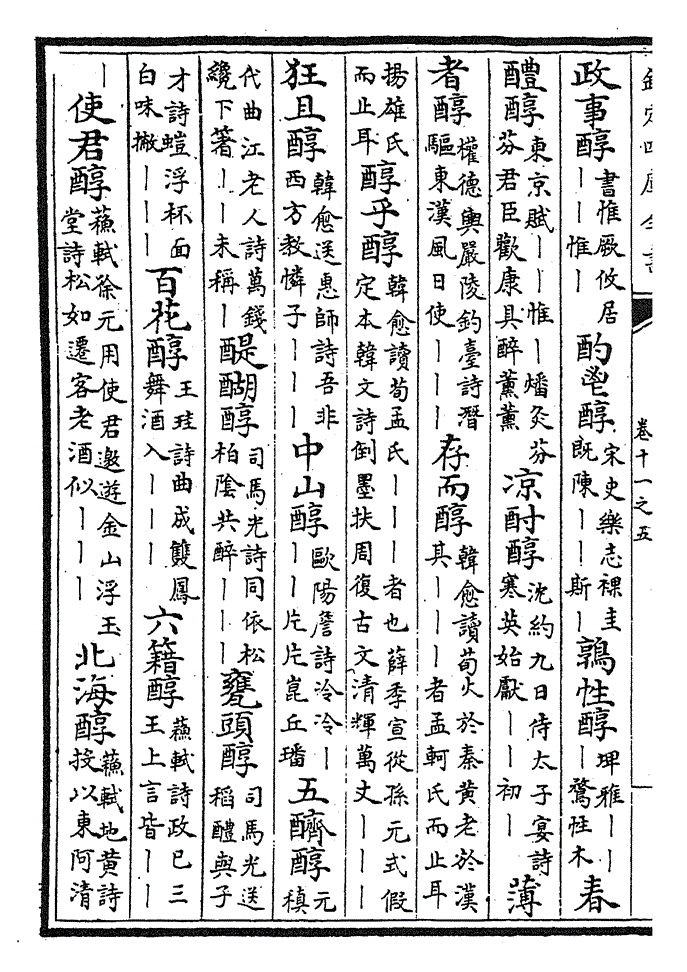 欽定四庫全書
卷十一之五
政事醇 書惟厥攸居｜｜惟｜ 酌鬯醇 宋史樂志祼圭既陳｜｜斯｜ 鶉性醇 埤雅｜｜｜鶩性木 春
醴醇 東京賦｜｜惟｜燔炙芬芬君臣歡康具醉薰薰 凉酎醇 沈約九日侍太子宴詩寒英始獻｜｜初｜ 薄
者醇 權德輿嚴陵釣臺詩潛驅東漢風日使｜｜｜ 存而醇 韓愈讀荀火於秦黄老於漢其｜｜｜者孟軻氏而止耳
揚雄氏而止耳 醇乎醇 韓愈讀荀孟氏｜｜｜者也薛季宣從孫元式假定本韓文詩倒墨扶周復古文清輝萬丈｜｜｜
狂且醇 韓愈送惠師詩吾非西方教憐子｜｜｜ 中山醇 歐陽詹詩泠泠｜｜｜片片崑丘璠 五醇 元稹
代曲江老人詩萬錢纔下箸｜｜未稱｜ 醍醐醇 司馬光詩同依松柏陰共醉｜｜｜ 甕頭醇 司馬光送稻醴與子
才詩螘浮杯面白味撇｜｜｜ 百花醇 王珪詩曲成雙鳳舞酒入｜｜｜ 六籍醇 蘇軾詩政已三王上言皆｜｜
｜ 使君醇 蘇軾徐元用使君邀遊金山浮玉堂詩松如遷客老酒似｜｜｜ 北海醇 蘇軾地黄詩投以東阿清